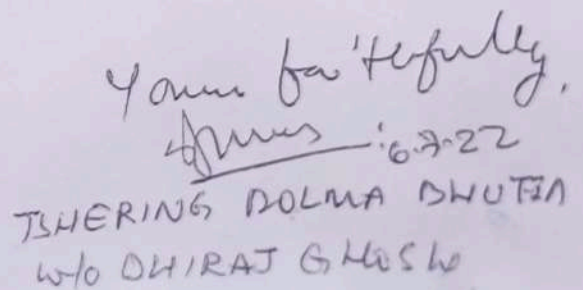 Yours faithfully,
:6.7.22
TSHERING DOLMA BHUTIA
W/o DHIRAJ GHOSH